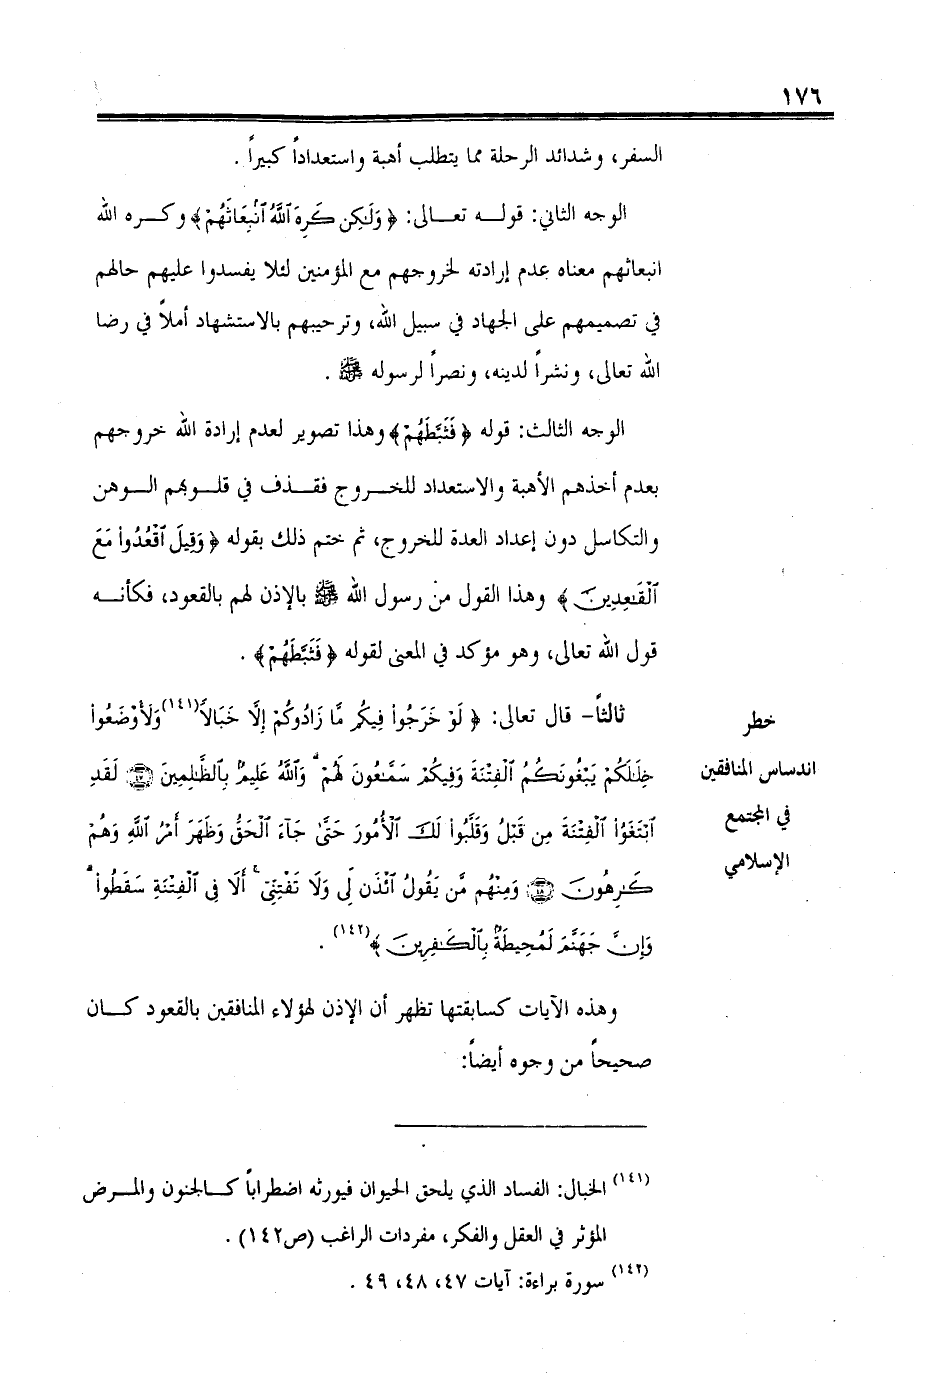 ١٧٦
السفر، وشدائد الرحلة مما يتطلب أهبة واستعداداً كبيراً .
الوجه الثاني: قولـــه تعـــالى: ﴿ وَلَـٰكِن كَرِهَ ٱللَّهُ ٱنۢبِعَاثَهُمْ﴾ وكـــره الله
انبعاثهم معناه عدم إرادته لخروجهم مع المؤمنين لئلا يفسدوا عليهم حالهم
في تصميمهم على الجهاد في سبيل الله، وترحيبهم بالاستشهاد أملاً في رضا
الله تعالى، ونشراً لدينه، ونصراً لرسوله ﷺ .
الوجه الثالث: قوله ﴿ فَثَبَّطَهُمْ﴾ وهذا تصوير لعدم إرادة الله خروجهم
بعدم أخذهم الأهبة والاستعداد للخـــروج فقـــذف في قلـــوبهم الـــوهن
والتكاسل دون إعداد العدة للخروج، ثم ختم ذلك بقوله ﴿ وَقِيلَ ٱقْعُدُوا۟ مَعَ
ٱلْقَـٰعِدِينَ ﴾ وهذا القول من رسول الله ﷺ بالإذن لهم بالقعود، فكأنـــه
قول الله تعالى، وهو مؤكد في المعنى لقوله ﴿ فَثَبَّطَهُمْ﴾ .
ثالثاً– قال تعالى: ﴿ لَوْ خَرَجُوا۟ فِيكُم مَّا زَادُوكُمْ إِلَّا خَبَالًا(١٤١) وَلَأَوْضَعُوا۟
خِلَـٰلَكُمْ يَبْغُونَكُمُ ٱلْفِتْنَةَ وَفِيكُمْ سَمَّـٰعُونَ لَهُمْ ۗ وَٱللَّهُ عَلِيمٌۢ بِٱلظَّـٰلِمِينَ ۝٤٧ لَقَدِ
ٱبْتَغَوُا۟ ٱلْفِتْنَةَ مِن قَبْلُ وَقَلَّبُوا۟ لَكَ ٱلْأُمُورَ حَتَّىٰ جَآءَ ٱلْحَقُّ وَظَهَرَ أَمْرُ ٱللَّهِ وَهُمْ
كَـٰرِهُونَ ۝٤٨ وَمِنْهُم مَّن يَقُولُ ٱئْذَن لِّى وَلَا تَفْتِنِّىٓ ۚ أَلَا فِى ٱلْفِتْنَةِ سَقَطُوا۟ ۗ
وَإِنَّ جَهَنَّمَ لَمُحِيطَةٌۢ بِٱلْكَـٰفِرِينَ ﴾(١٤٢) .
خطر
اندساس المنافقين
في المجتمع
الإسلامي
وهذه الآيات كسابقتها تظهر أن الإذن لهؤلاء المنافقين بالقعود كـــان
صحيحاً من وجوه أيضاً:
(١٤١) الخبال: الفساد الذي يلحق الحيوان فيورثه اضطراباً كـــالجنون والمـــرض
المؤثر في العقل والفكر، مفردات الراغب (ص١٤٢) .
(١٤٢) سورة براءة: آيات ٤٧، ٤٨، ٤٩ .